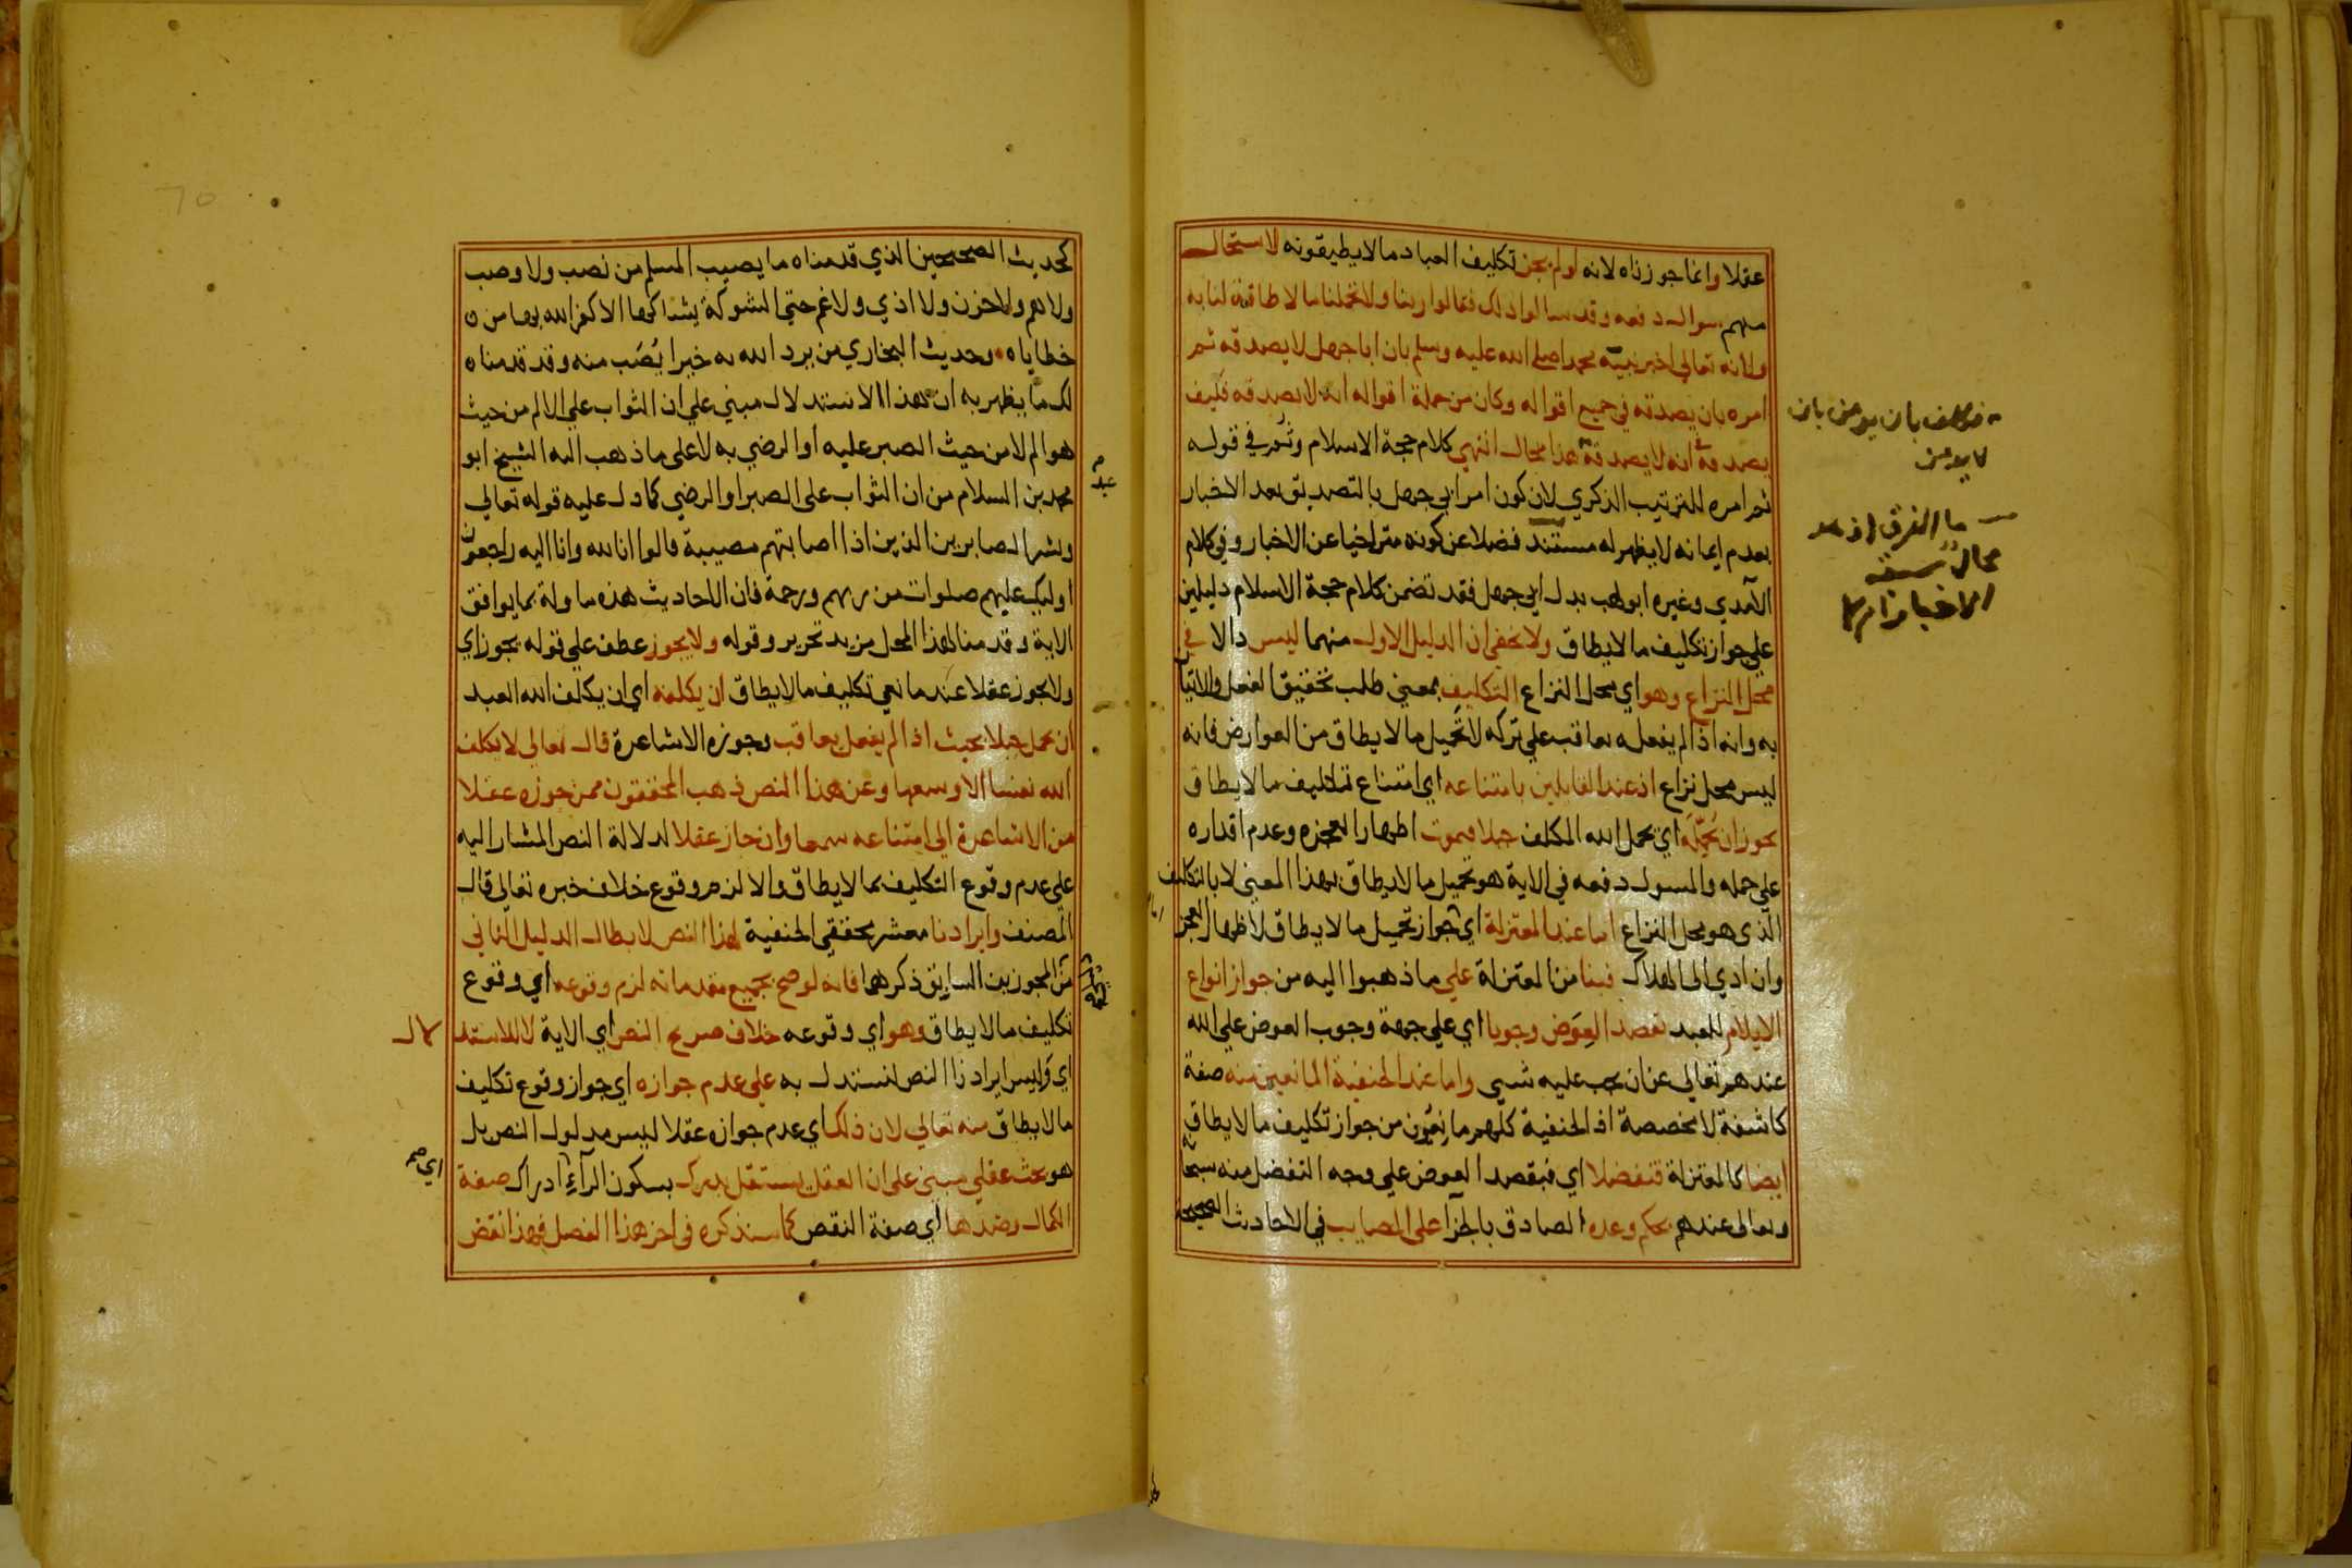 عقلا وانما جوزناه لانه لو لم يجز تكليف العباد ما لا يطيقونه لاستحال
منهم سوال دفعه وقد سالوا ذلك فقالوا ربنا ولا تحملنا ما لا طاقة لنا به
ولانه تعالي اخبر نبيه محمدا صلي الله عليه وسلم بان ابا جهل لا يصدقه ثم
امره بان يصدقه في جميع اقواله وكان من جملة اقواله انه لا يصدقه فكيف
يصدقه في انه لا يصدقه هذا محال انتهي كلام حجة الاسلام وثم في قوله
ثم امره للترتيب الذكري لان كون امر ابي جهل بالتصديق بعد الاخبار
بعدم ايمانه لا يظهر له مستند فضلا عن كونه متراخيا عن الاخبار وفي كلام
الآمدي وغيره ابو لهب بدل ابي جهل فقد تضمن كلام حجة الاسلام دليلين
علي جواز تكليف ما لا يطاق ولا يخفى ان الدليل الاول منهما ليس دالا في
محل النزاع وهو اي محل النزاع التكليف بمعني طلب تحقيق الفعل والاتيان
به وانه اذا لم يفعله يعاقب علي تركه لا تحميل ما لا يطاق من العوارض فانه
ليس محل نزاع اذ عند القايلين بامتناعه اي امتناع تكليف ما لا يطاق
يجوز ان يحمله اي يحمل الله المكلف جبلا فيموت اظهارا لعجزه وعدم اقداره
علي حمله والمسول دفعه في الاية هو تحميل ما لا يطاق بهذا المعني لا بالتكليف
الذي هو محل النزاع اما عند المعتزلة اي جواز تحميل ما لا يطاق لاظهار العجز
وان ادي الى الهلاك فبنا من المعتزلة علي ما ذهبوا اليه من جواز انواع
الايلام للعبد بقصد العوض وجوبا اي علي جهة وجوب العوض علي الله
عندهم تعالي عن ان يجب عليه شيى واما عند الحنفية المانعين منه صفة
كاشفة لا مخصصة اذ الحنفية كلهم مانعون من جواز تكليف ما لا يطاق
ايضا كالمعتزلة فتفضلا اي فبقصد العوض علي وجه التفضل منه سبحانه
وتعالى عندهم بحكم وعده الصادق بالجزآ على المصايب في الاحاديث الصحيحة
فكلف بان يومن بان
لا يومن
ما الفرق اذ هو
محال
كحديث الصحيحين الذي قدمناه ما يصيب المسلم من نصب ولا وصب
ولا هم ولا حزن ولا اذي ولا غم حتي الشوكة يشاكها الا كفر الله بها من
خطاياه وحديث البخاري من يرد الله به خيرا يُصَب منه وقد قدمناه
لك ما يظهر به ان هذا الاستدلال مبني علي ان الثواب علي الالم من حيث
هو الم لا من حيث الصبر عليه او الرضي به لا على ما ذهب اليه الشيخ ابو
محمد بن السلام من ان الثواب على الصبر او الرضي كما دل عليه قوله تعالي
وبشر الصابرين الذين اذا اصابتهم مصيبة قالوا انا لله وانا اليه راجعون
اوليك عليهم صلوات من ربهم ورحمة فان الاحاديث هذه ماولة بما يوافق
الاية وقدمنا لهذا المحل مزيد تحرير وقوله ولا يجوز عطف علي قوله يجوز اي
ولا يجوز عقلا عند مانعي تكليف ما لا يطاق ان يكلفه اي ان يكلف الله العبد
ان يحمل جبلا بحيث اذا لم يفعل يعاقب وجوزه الاشاعرة قال تعالي لا يكلف
الله نفسا الا وسعها وعن هذا النص ذهب المحققون ممن جوزه عقلا
من الاشاعرة الي امتناعه سمعا وان جاز عقلا لدلالة النص المشار اليه
علي عدم وقوع التكليف بما لا يطاق والا لزم وقوع خلاف خبره تعالي قال
المصنف وايرادنا معشر محققي الحنفية لهذا النص لابطال الدليل الثاني
من المجوزين السابق ذكرها فانه لو صح بجميع مقدماته لزم وقوعه اي وقوع
تكليف ما لا يطاق وهو اي وقوعه خلاف صريح النص اي الاية لا للاستدلال
اي وليس ايرادنا النص لنستدل به علي عدم جوازه اي جواز وقوع تكليف
ما لا يطاق منه تعالي لان ذلك اي عدم جوازه عقلا ليس مدلول النص بل
هو بحث عقلي مبني على ان العقل يستقل بدرك بسكون الرآء اي ادراك صفة
الكمال وضدها اي صفة النقص كما سنذكره في اخر هذا الفصل فهذا نقض
عبد